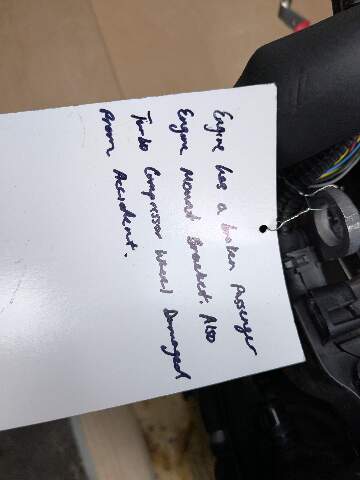 Engine has a broken Passenger
Engine Mount Bracket. Also
Turbo Compressor Wheel Damaged
From Accident.